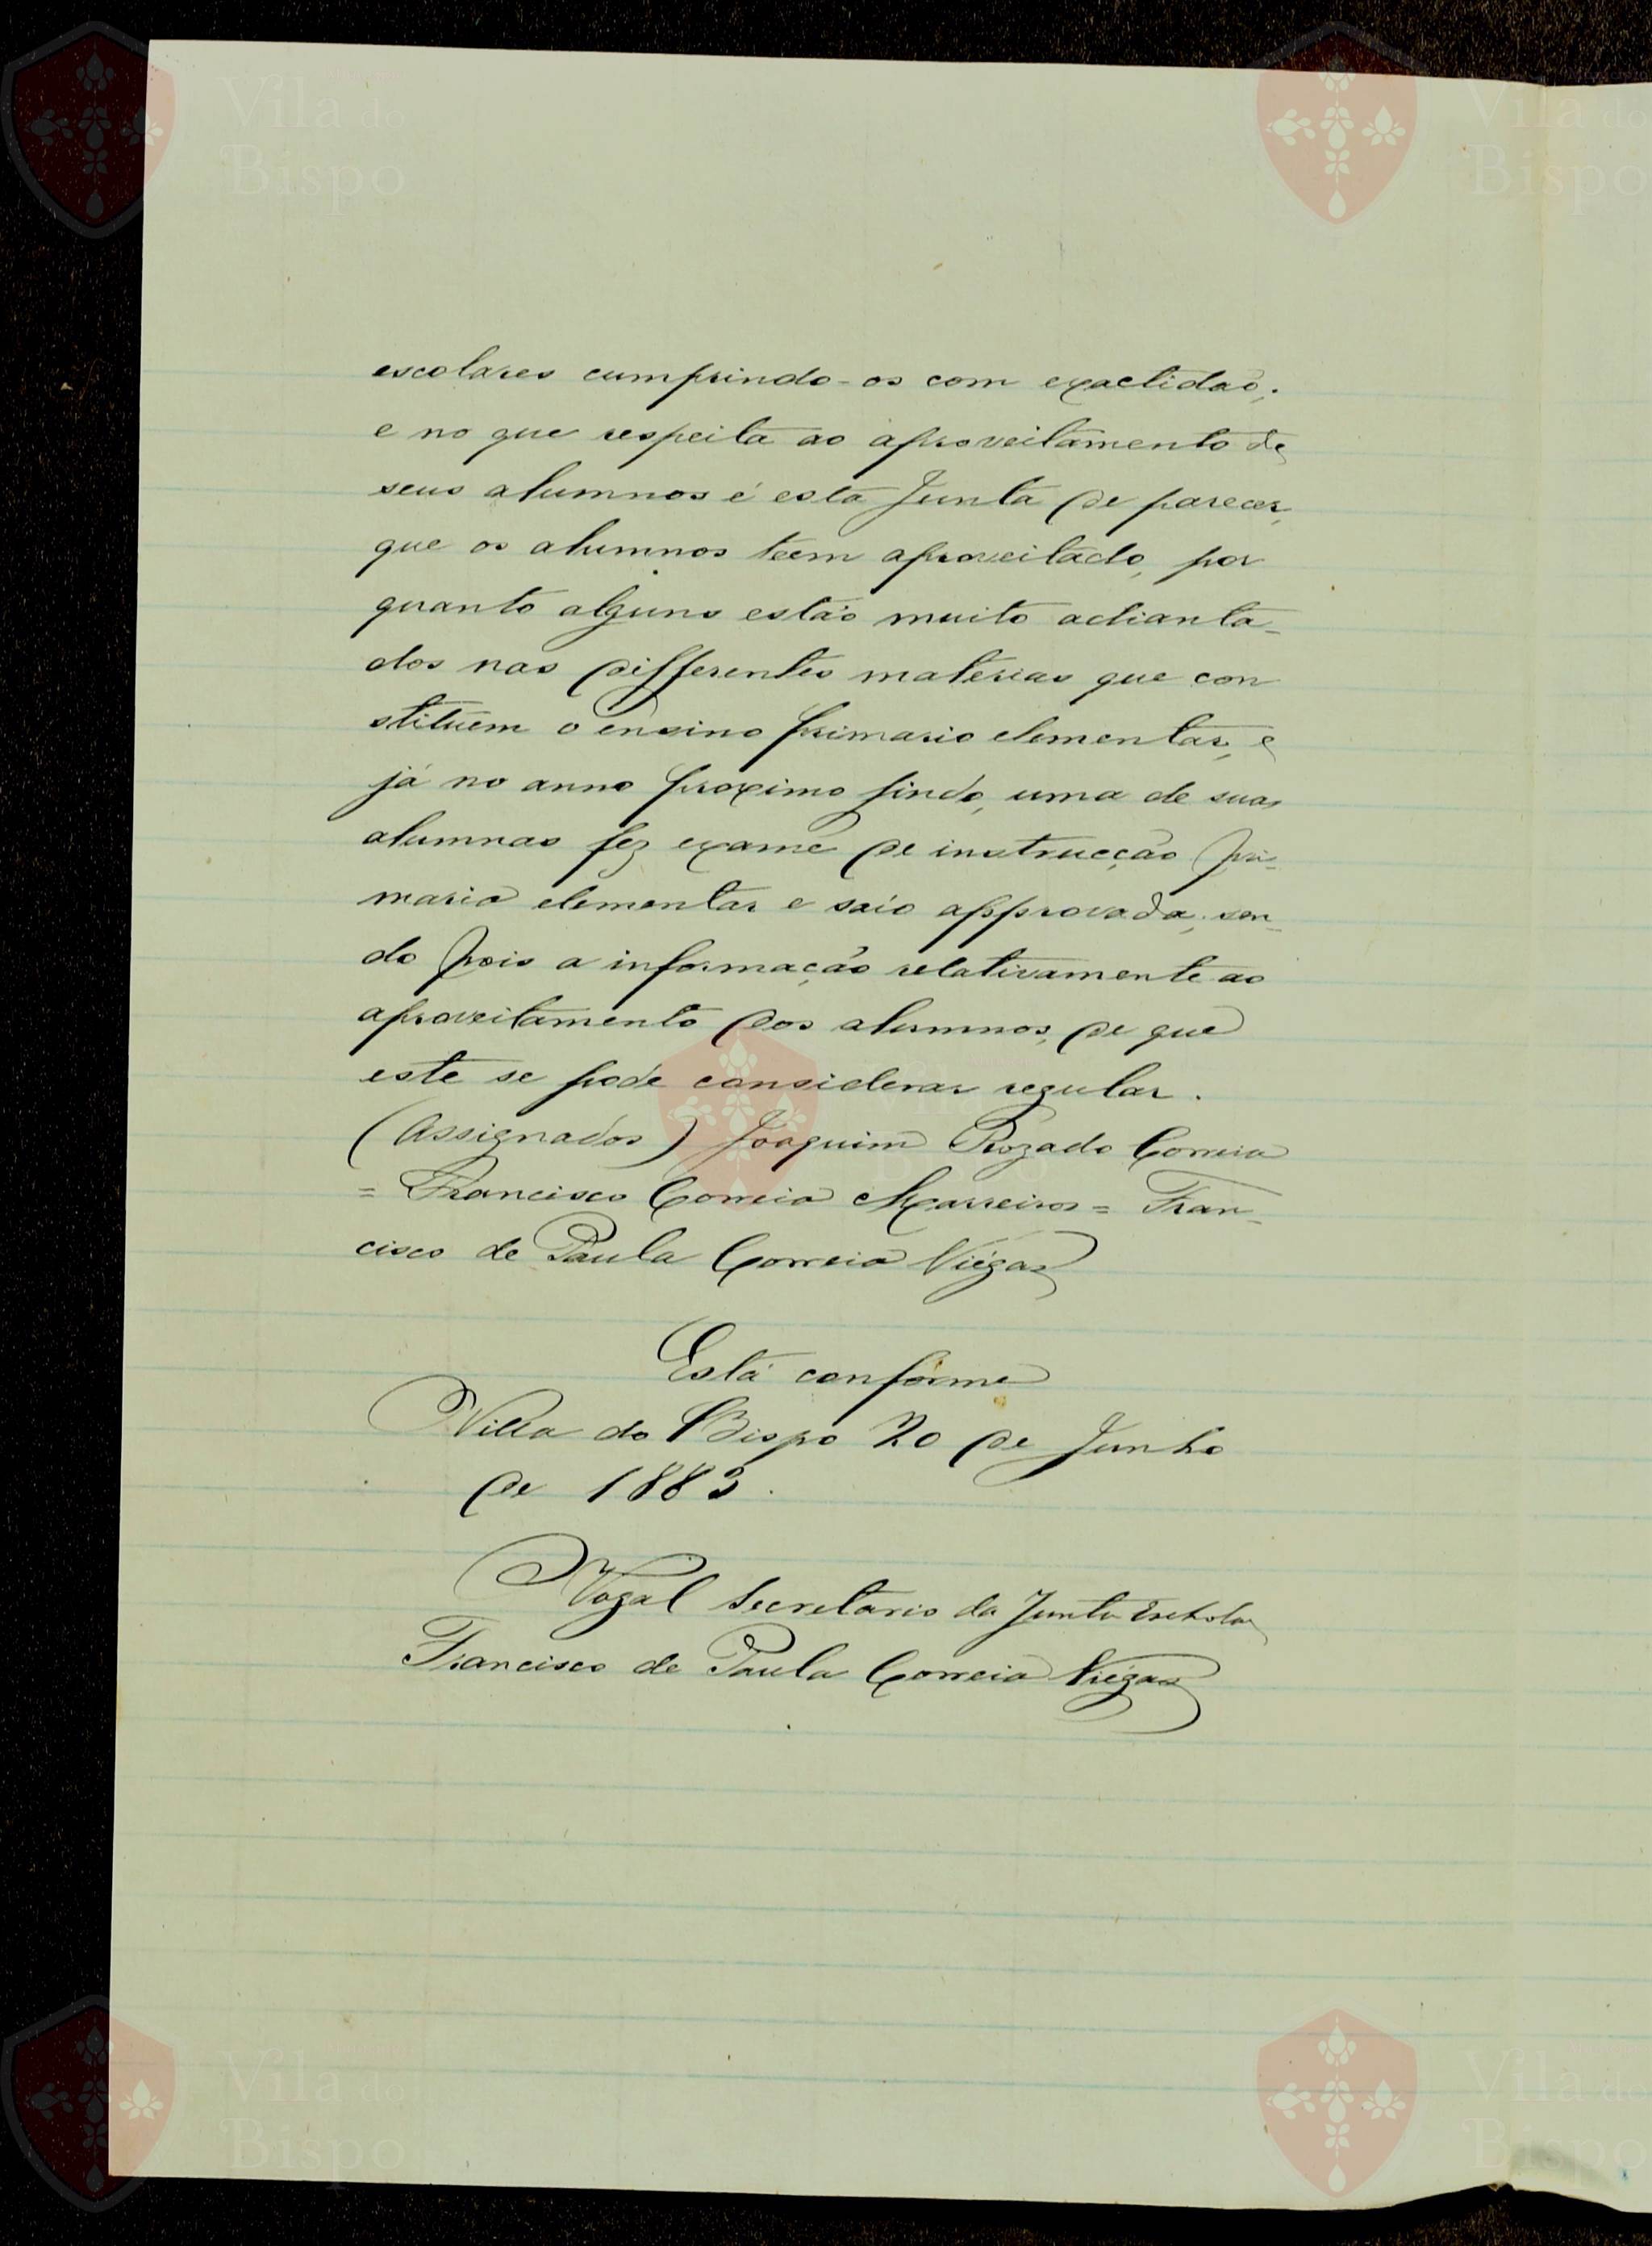 escolares cumprindo-os com exactidão;
e no que respeita ao aproveitamento de
seus alumnos é esta Junta de parecer,
que os alumnos teem aproveitado, por
quanto alguns estão muito adianta-
dos nas differentes materias que con
stituem o ensino primario elementar, e
já no anno proximo findo, uma de suas
alumnas fez exame de instrucção pri-
maria elementar e saío approvada; sen-
do pois a informação relativamente ao
aproveitamento dos alumnos, de que
este se pode considerar regular.
(Assignados) Joaquim Rozado Correia
= Francisco Correia Marreiros = Fran-
cisco de Paula Correia Viégas
Está conforme
Villa do Bispo 20 de Junho
de 1883.
O Vogal Secretario da Junta Escholar
Francisco de Paula Correia Viégas
Vila do
Bispo
Vila do
Bispo
Vila do
Bispo
Vila do
Bispo